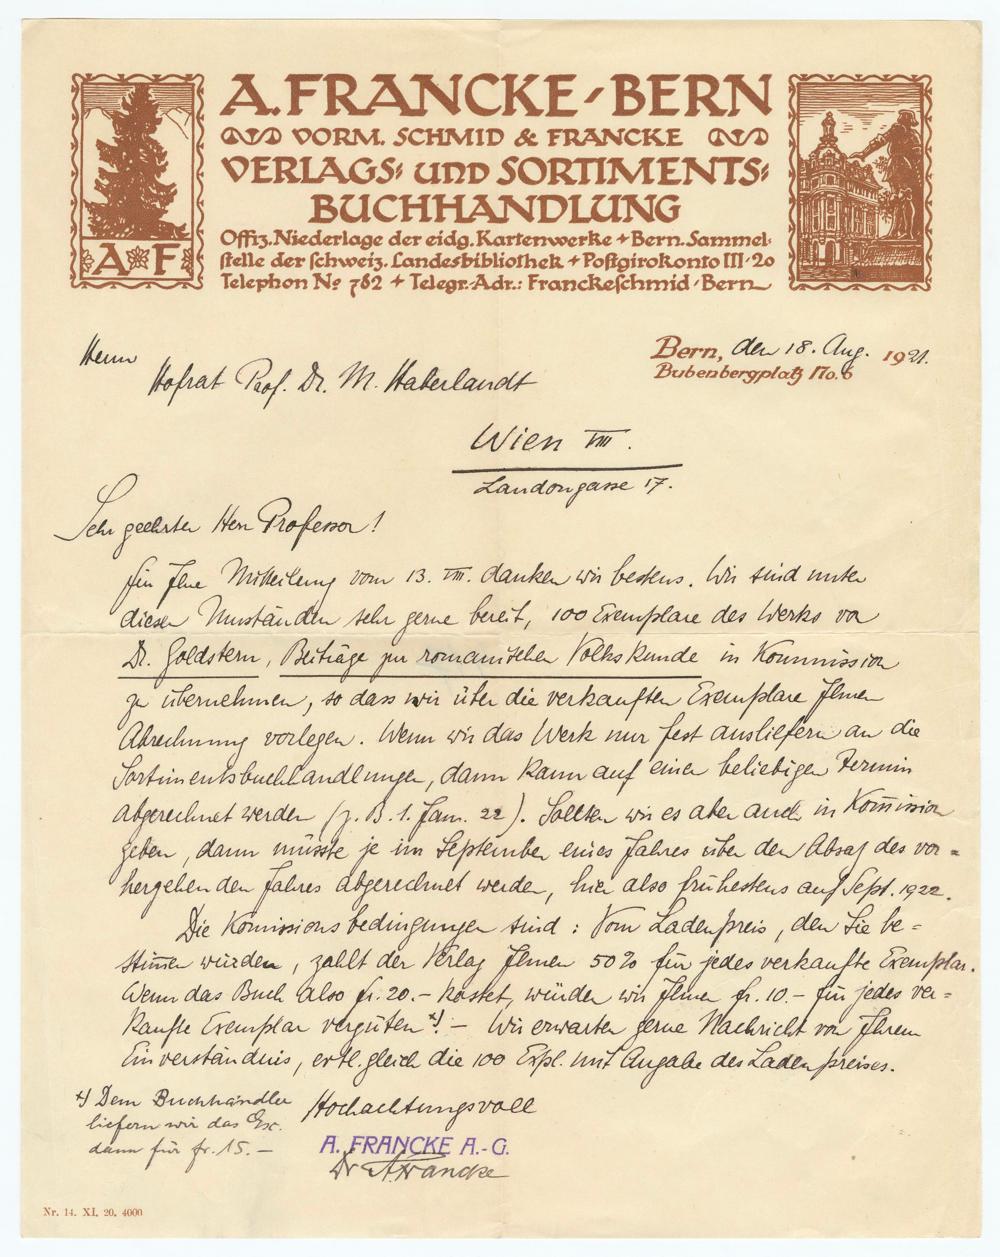 A. FRANCKE-BERN
VORM. SCHMID & FRANCKE
VERLAGS- UND SORTIMENTS-
BUCHHANDLUNG
Offiz. Niederlage der eidg. Kartenwerke + Bern. Sammel-
stelle der schweiz. Landesbibliothek + Postgirokonto III-20
Telephon No 762 + Telegr.-Adr.: Franckeschmid-Bern
A F
Bern, den 18. Aug. 1921.
Bubenbergplatz No. 6
Herrn
Hofrat Prof. Dr. M. Haberlandt
Wien VIII.
Laudongasse 17.
Sehr geehrter Herr Professor!
Für Ihre Mitteilung vom 13. VIII. danken wir bestens. Wir sind unter
diesen Umständen sehr gerne bereit, 100 Exemplare des Werks von
Dr. Goldstern, Beiträge zur romanischen Volkskunde in Kommission
zu übernehmen, so dass wir über die verkauften Exemplare Ihnen
Abrechnung vorlegen. Wenn wir das Werk nur fest ausliefern an die
Sortimentsbuchhandlungen, dann kann auf einen beliebigen Termin
abgerechnet werden (z. B. 1. Jan. 22). Sollten wir es aber auch in Kom̅ission
geben, dann müsste je im September eines Jahres über den Absatz des vor-
hergehenden Jahres abgerechnet werden, hier also frühestens auf Sept. 1922.
Die Kom̅issionsbedingungen sind: Vom Ladenpreis, den Sie be-
stim̅en würden, zahlt der Verlag Ihnen 50% für jedes verkaufte Exemplar.
Wenn das Buch also fr. 20.- kostet, würden wir Ihnen fr. 10.- für jedes ver-
kaufte Exemplar vergüten *)! - Wir erwarten gerne Nachricht von Ihrem
Einverständnis, evtl. gleich die 100 Expl. mit Angabe des Ladenpreises.
Hochachtungsvoll
*) Dem Buchhändler
liefern wir das Ex.
dann für fr. 15. -
A. FRANCKE A.-G.
Dr A. Francke
Nr. 14. XI. 20. 4000